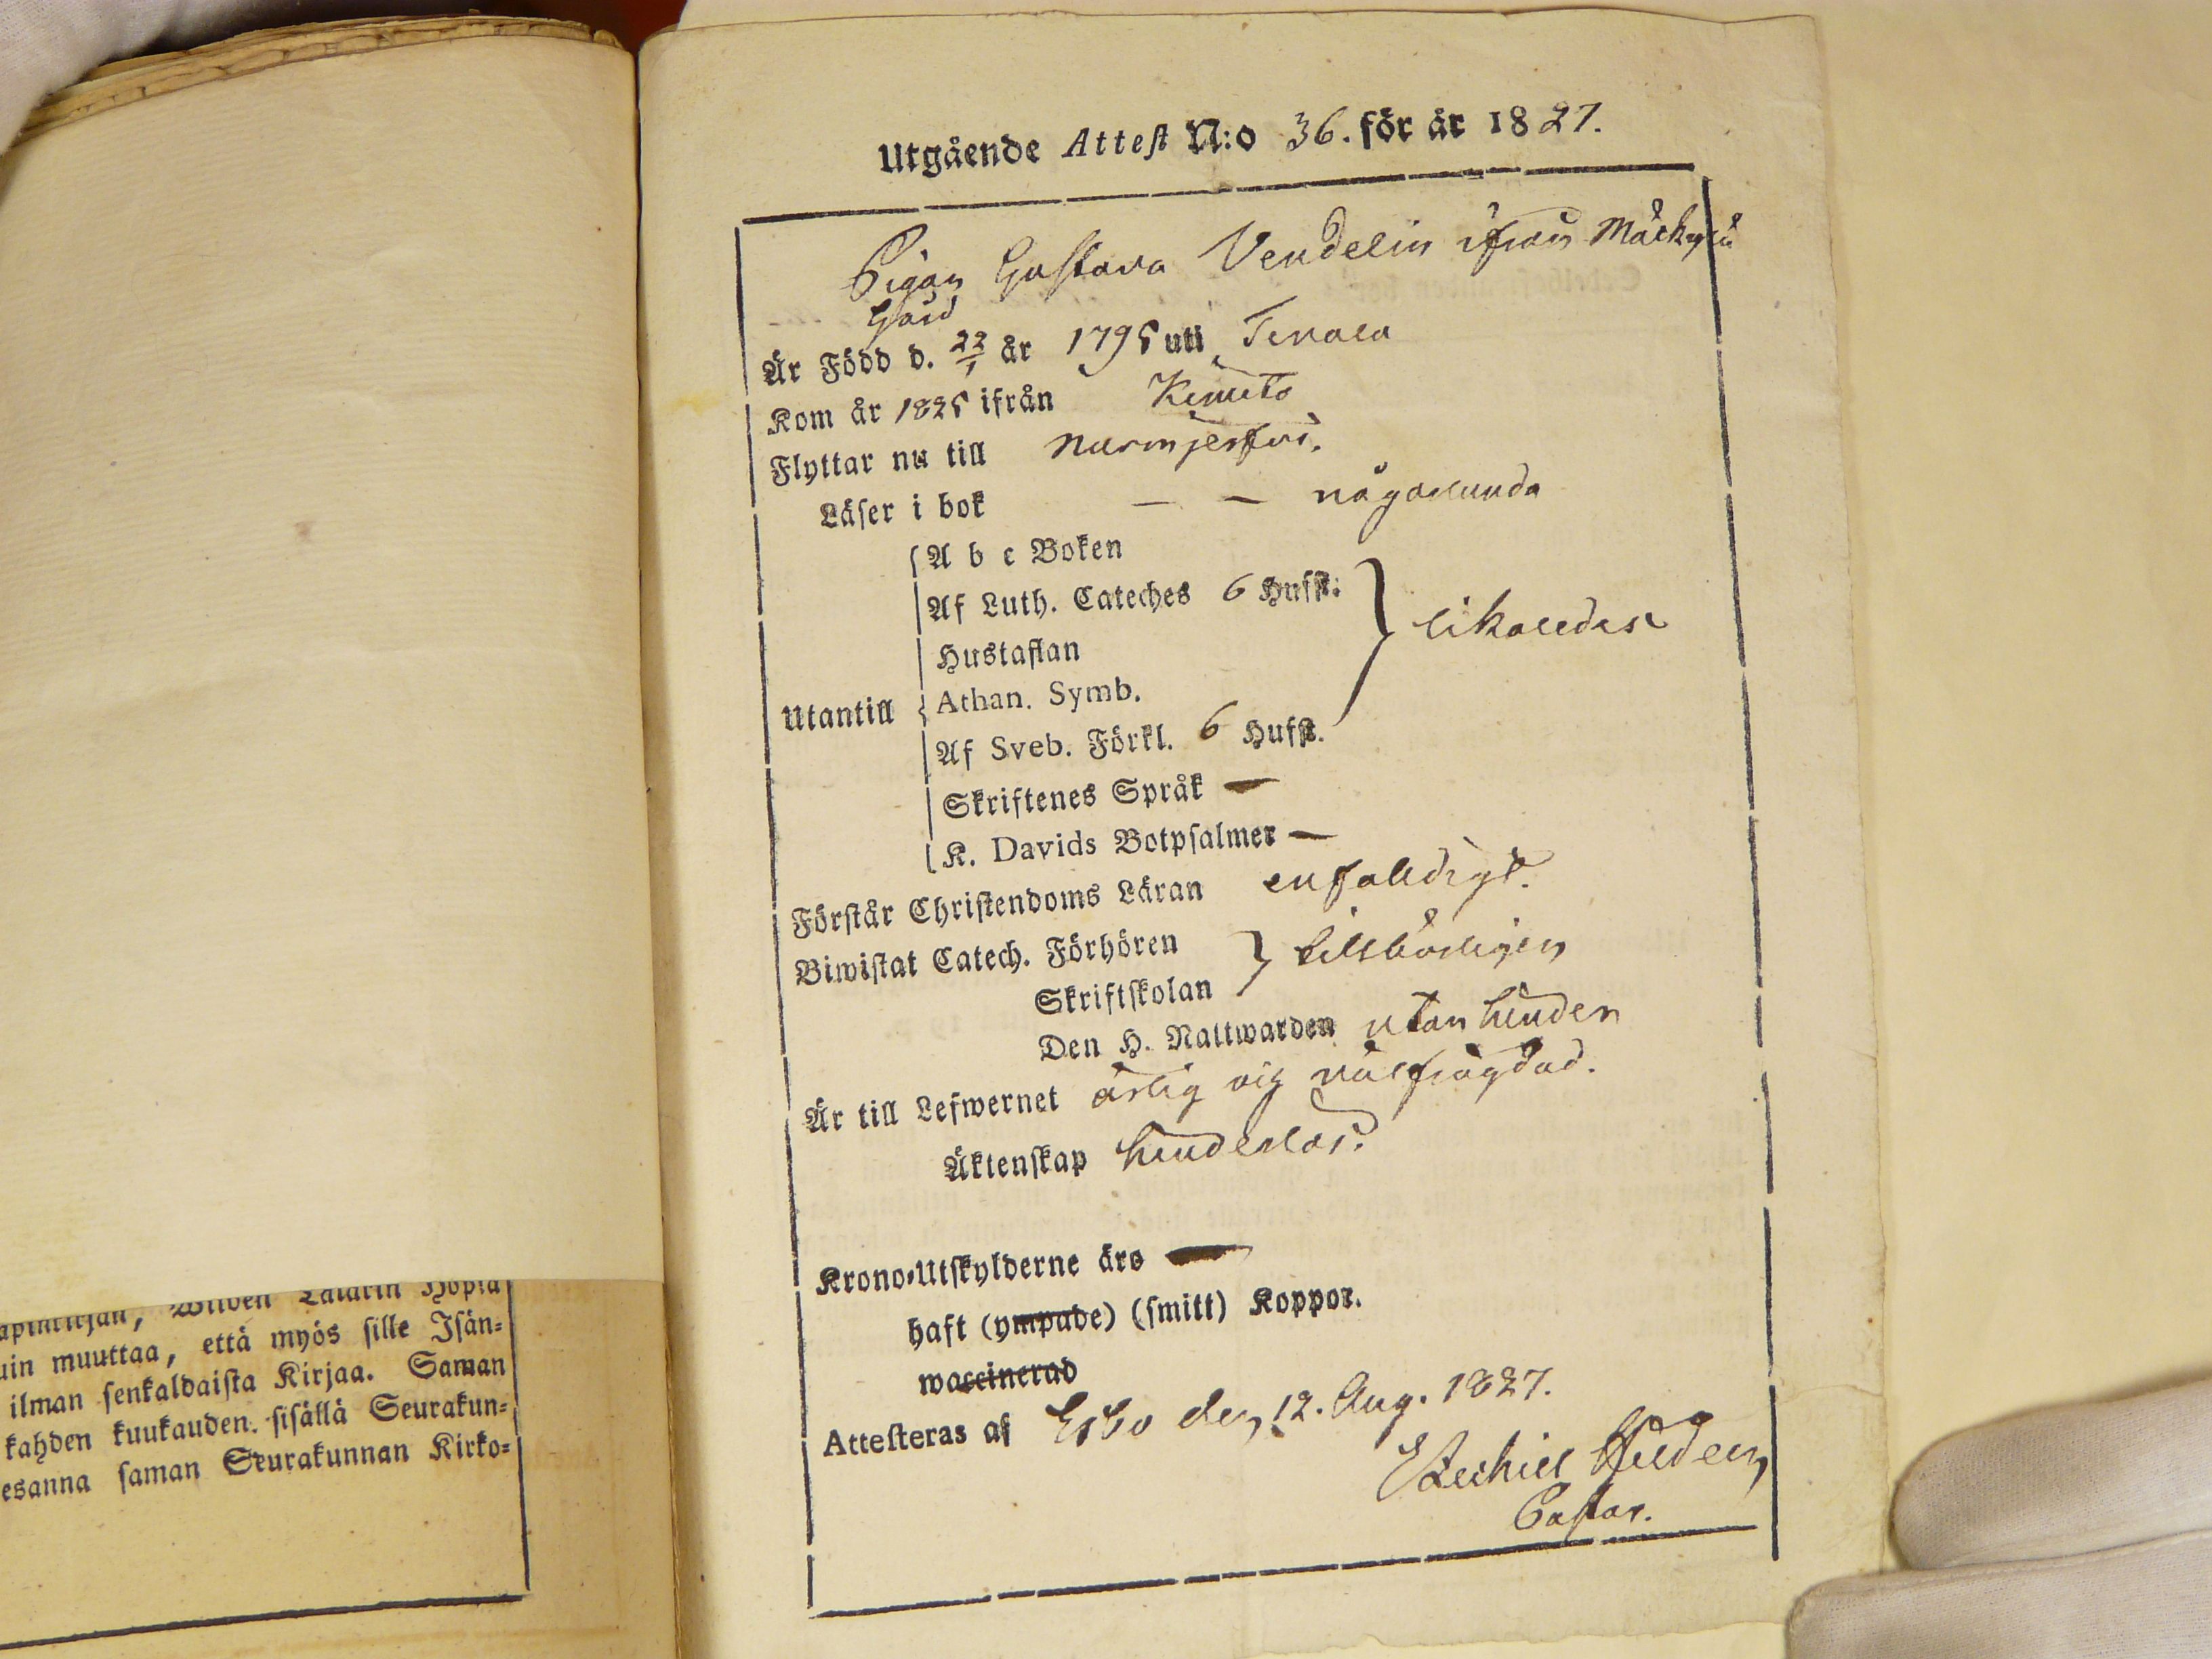 apinkirjan, Wiiden Lalarin Hopia
uin muuttaa, että myös sille Isän-
ilman senkaldaista Kirjaa. Saman
kahden kuukauden. sisällä Seurakun-
esanna saman Seurakunnan Kirko-
Utgående Attest N:o 36. för år 1827.
Pigan Gustava Vendelin ifrån
Gård
Är Född d. 22/1 år 1795 uti Tenala
Kom år 1825 ifrån Kimito
Flyttar nu till Nurmijerfvi.
Läser i bok — — någorlunda
A b c Boken
Af Luth. Cateches 6 Hufst:
Hustaflan
likaledes
Utantill
Athan. Symb.
Af Sveb. Förkl. 6 Hufst.
Skriftenes Språk —
K. Davids Botpsalmer —
Förstår Christendoms Läran enfaldigt.
Biwistat Catech. Förhören
Skriftskolan
tillbörligen
Den H. Nattwarden utan hinder
Är till Lefwernet ärlig och välfrägdad.
Äktenskap hinderlös.
Krono-Utskylderne äro —
haft (ympade) (smitt) Koppor.
waccinerad
Attesteras af Esbo den 12. Aug. 1827.
Ezechiel Hildeen
Pastor.